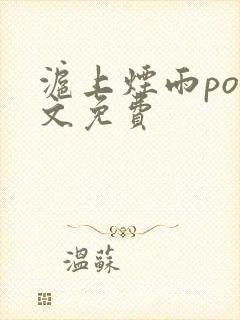 滬上煙雨po
文免費
溫蘇